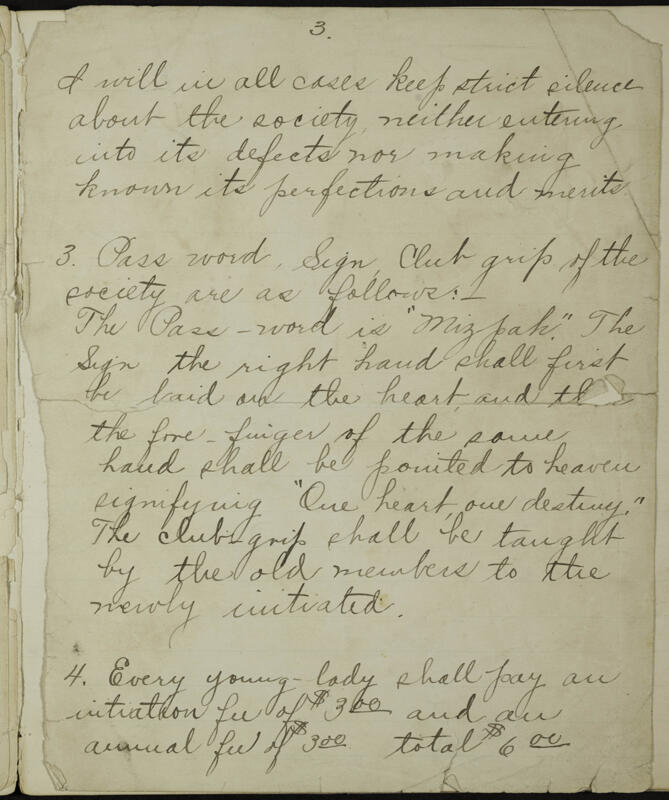 3.
I will in all cases keep strict silence
about the society, neither entering
into its defects nor making
known its perfections and merits.
3. Pass word, Sign, Club grip of the
society are as follows:-
The Pass-word is "Mizpah." The
Sign the right hand shall first
be laid on the heart, and
the fore-finger of the same
hand shall be pointed to heaven
signifying "One heart, one destiny."
The club-grip shall be taught
by the old members to the
newly initiated.
4. Every young-lady shall pay an
intiation fee of $3.00 and an
annual fee of $3.00 total $6.00